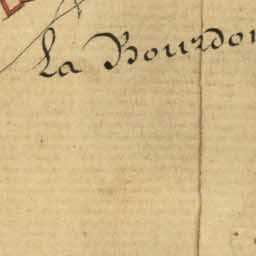 La Bourdon